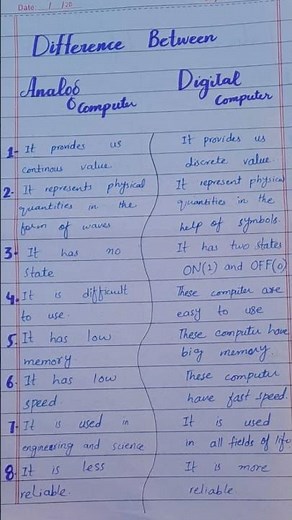 Date / /20
Difference Between
Analog Computer
Digital Computer
1- It provides us
continous value.
It provides us
discrete value
2- It represents physical
quantities in the
form of waves
It represent physical
quantities in the
help of symbols.
3- It has no
state
It has two states
ON(1) and OFF(0)
4- It is difficult
to use.
These computer are
easy to use
5. It has low
memory.
These computer have
big memory.
6. It has low
speed.
These computer
have fast speed.
7- It is used in
engineering and science
It is used
in all fields of life
8- It is less
reliable.
It is more
reliable